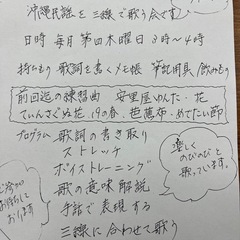 沖縄民謡を三線で歌う会です
日時 毎月第四木曜日 3時〜4時
持ちもの 歌詞を書くメモ帳 筆記用具 飲みもの
前回迄の練習曲 安里屋ゆんた・花
てぃんさぐぬ花 19の春、芭蕉布・めでたい節
プログラム 歌詞の書き取り
ストレッチ
ボイストレーニング
歌の意味解説
手話で表現する
三線に合わせて歌う
楽しく
のびのびと
歌っています。
ご参加
お待ちして
おります